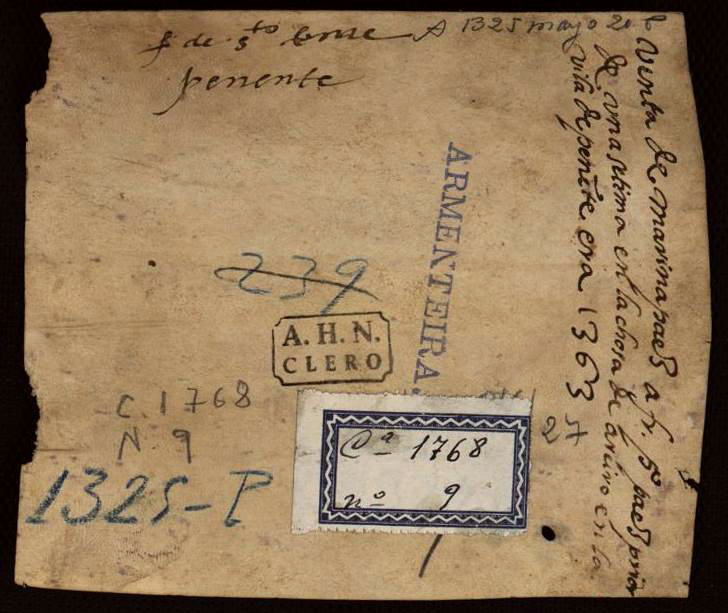 f de sto
penente
A 1325 mayo 20
venta de marina paez a fr. po paez prior
de vna setima en la chosa de en la
villa de penẽte era 1363
ARMENTEIRA
239
A. H. N.
CLERO
C. 1768
N. 9
27
Cª 1768
nº 9
1325-P